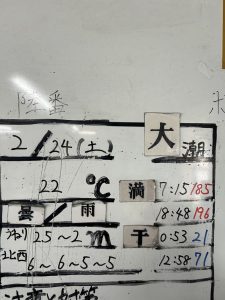 陸番
2/24(土) 大潮
22 ℃ 満 7:15 185
曇/雨 18:48 196
25~2m 干 0:53 21
北西 6~6~5~5 12:58 71